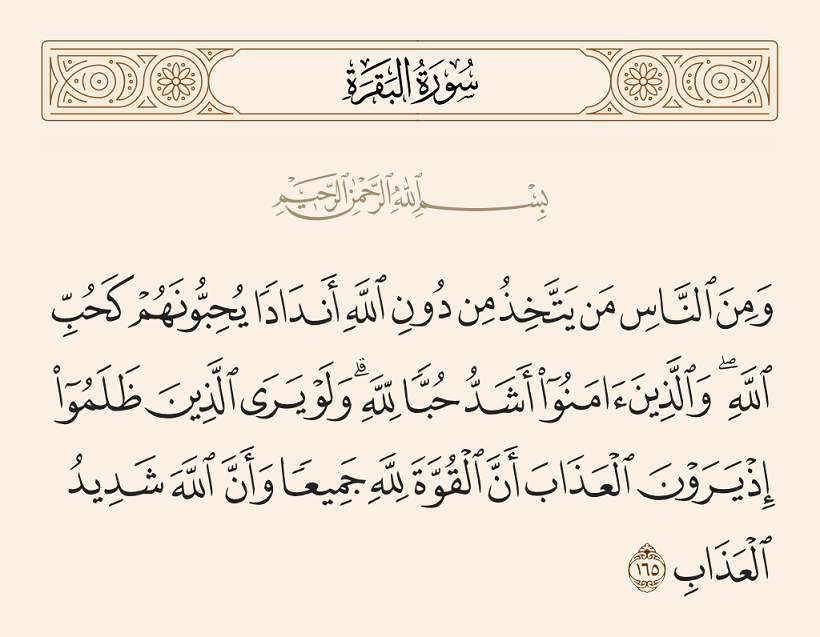 سُورَةُ البَقَرَةِ
بِسْمِ ٱللَّهِ ٱلرَّحْمَٰنِ ٱلرَّحِيمِ
وَمِنَ ٱلنَّاسِ مَن يَتَّخِذُ مِن دُونِ ٱللَّهِ أَندَادٗا يُحِبُّونَهُمۡ كَحُبِّ
ٱللَّهِۖ وَٱلَّذِينَ ءَامَنُوٓاْ أَشَدُّ حُبّٗا لِّلَّهِۗ وَلَوۡ يَرَى ٱلَّذِينَ ظَلَمُوٓاْ
إِذۡ يَرَوۡنَ ٱلۡعَذَابَ أَنَّ ٱلۡقُوَّةَ لِلَّهِ جَمِيعٗا وَأَنَّ ٱللَّهَ شَدِيدُ
ٱلۡعَذَابِ ١٦٥